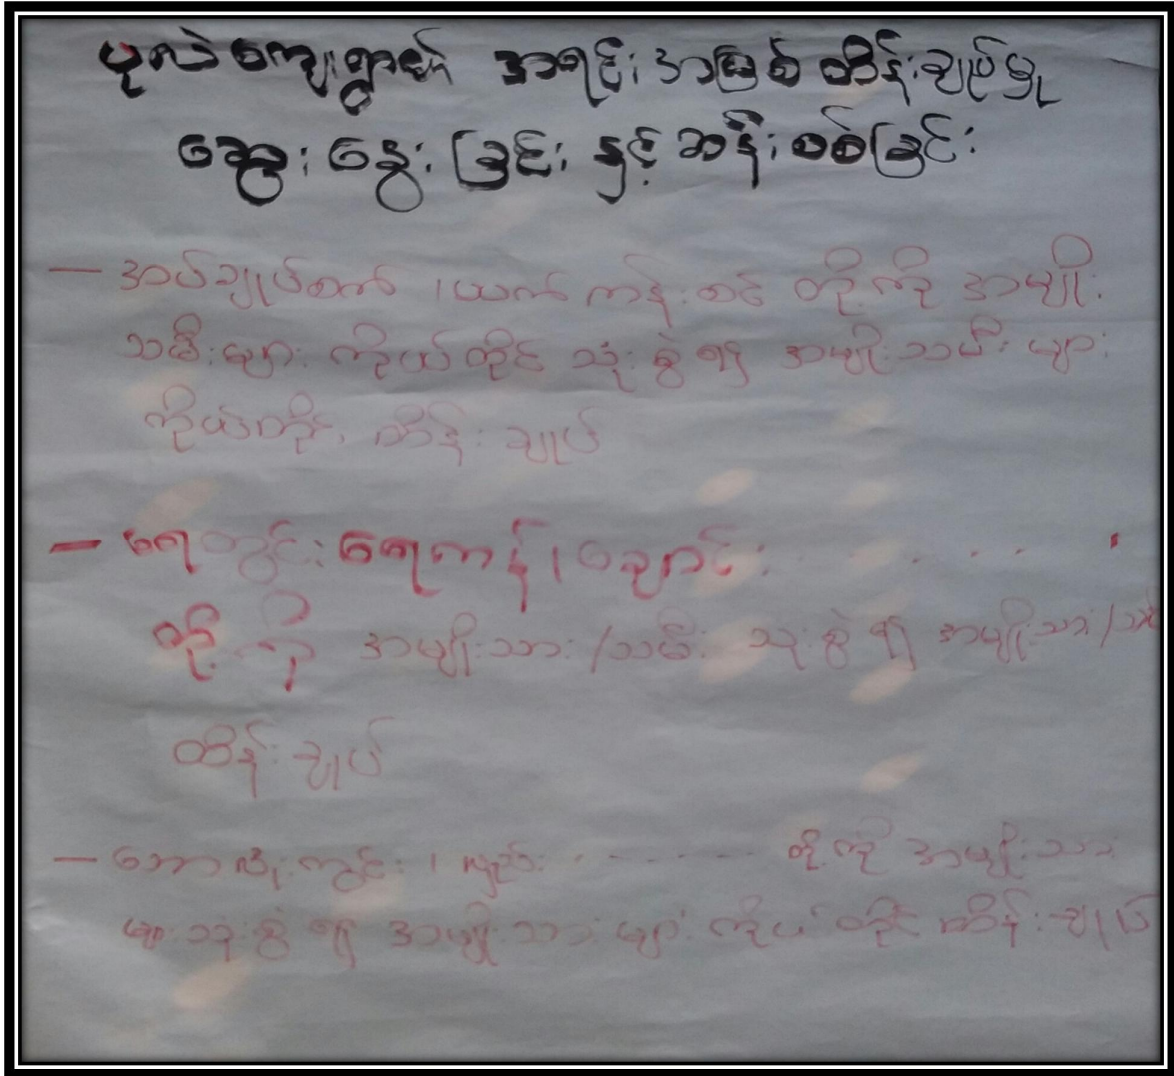 ပုလဲကျေးရွာ၏ အရင်းအမြစ် ထိန်းချုပ်မှု
ဆွေးနွေးခြင်းနှင့် ဆန်းစစ်ခြင်း
– အပ်ချုပ်စက် ၊ ယက်ကန်းစင် တို့ကို အမျိုး
သမီးများ ကိုယ်တိုင် သုံးစွဲ၍ အမျိုးသမီးများ
ကိုယ်တိုင် ထိန်းချုပ်
– ရေတွင်း ရေကန် ၊ ချောင်း . . . .
တို့ကို အမျိုးသား /သမီး သုံးစွဲ၍ အမျိုးသား /သမီး
ထိန်းချုပ်
– ဘောလုံးကွင်း ၊ လှည်း - - - - - - - တို့ကို အမျိုးသား
များ သုံးစွဲ၍ အမျိုးသားများ ကိုယ်တိုင် ထိန်းချုပ်